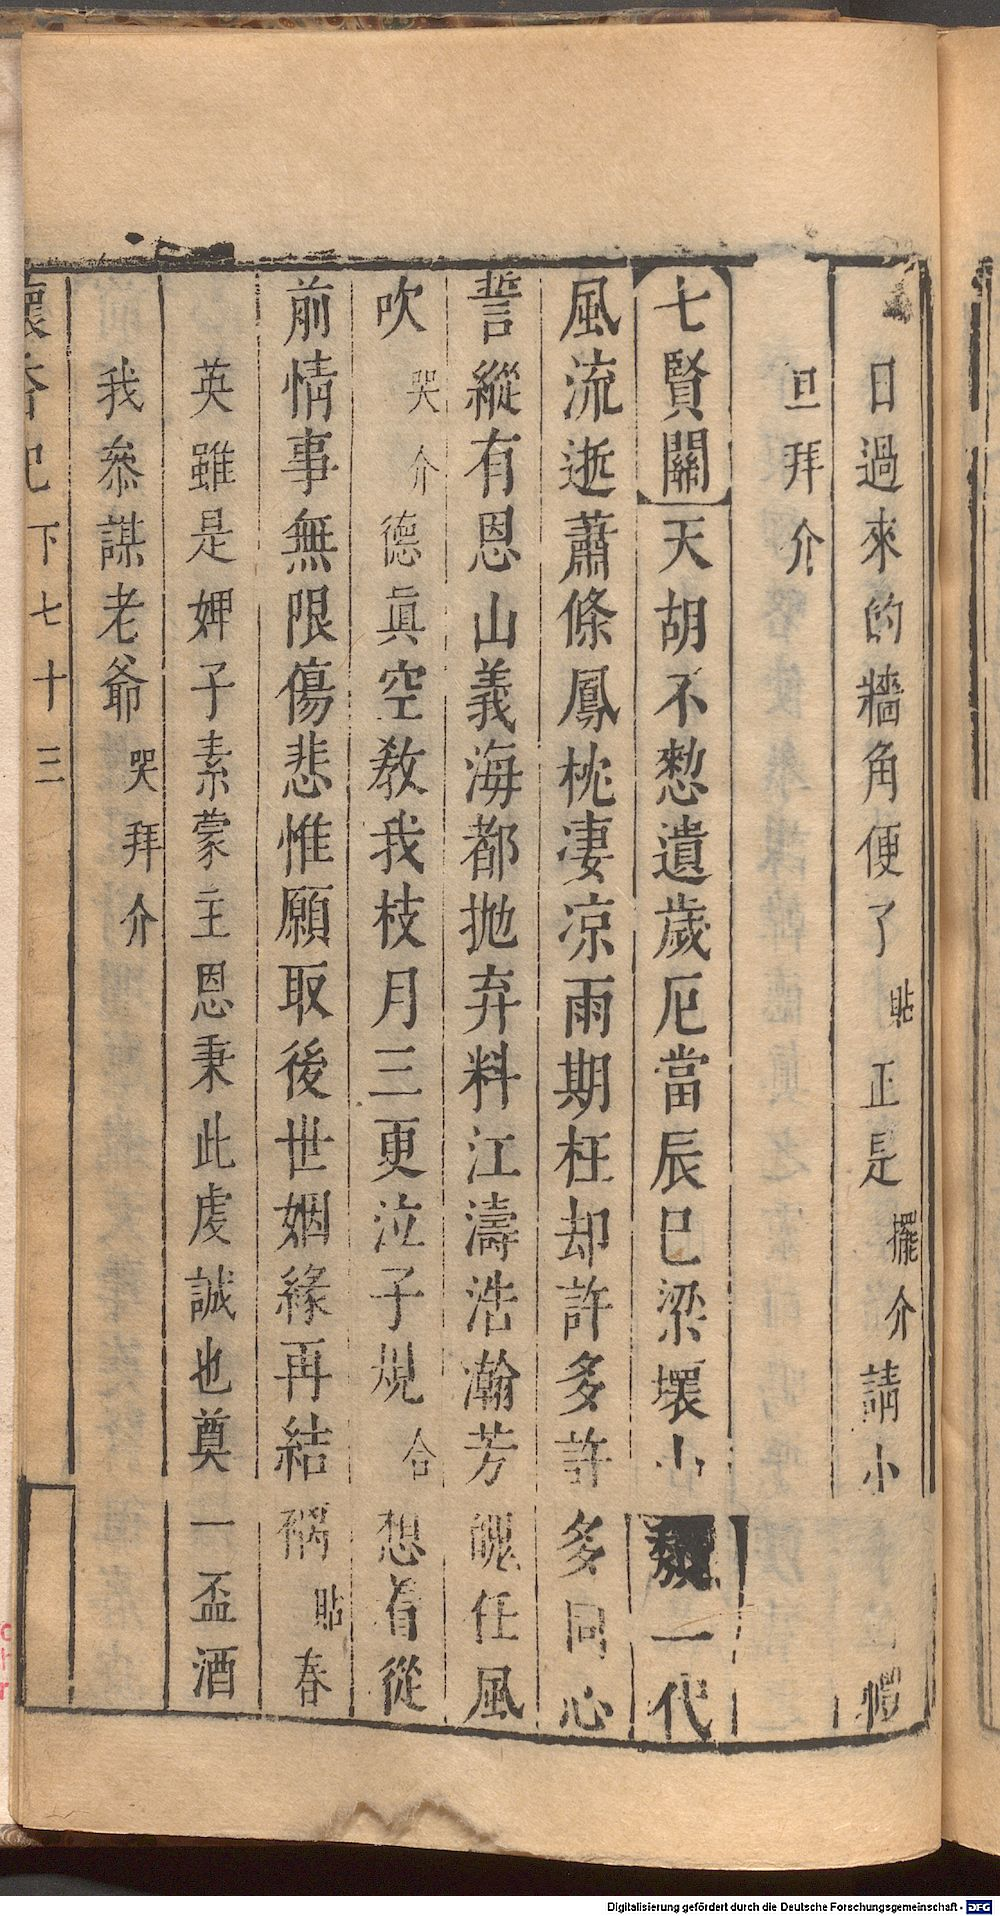 日過來的牆角便了貼正是擺介請小
旦拜介
七賢關天胡不憗遺歲厄當辰巳梁壞山一代
風流逝蕭條鳳枕凄凉雨期枉却許多許多同心
誓縱有恩山義海都拋弃料江濤浩瀚芳魄任風
吹哭介德真空教我枝月三更泣子規合想着從
前情事無限傷悲惟願取後世姻緣再結禍貼春
英雖是婢子素蒙主恩秉此虔誠也奠一盃酒
我叅謀老爺哭拜介
懷香記下七十三
Digitalisierung gefördert durch die Deutsche Forschungsgemeinschaft - DFG